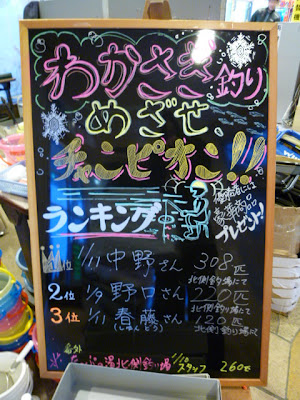 わかさぎ釣り
めざせ
チャンピオン!!
ランキング
プレゼント!
1位 1/11 中野さん 308匹
北側釣り場にて
2位 1/9 野口さん 220匹
北側釣り場にて
3位 1/11 春藤さん 120匹
(しゅんどう) 北側釣り場にて
番外
北側釣り場 1/10 スタッフ 260匹